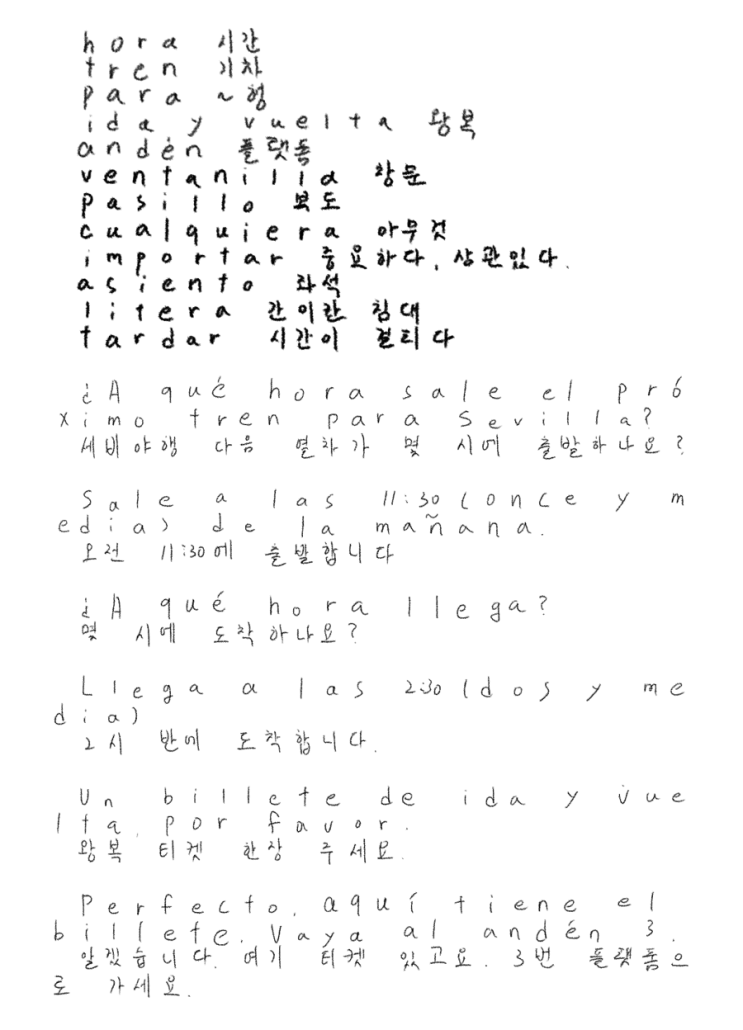 hora 시간
tren 기차
para ~행
ida y vuelta 왕복
andén 플랫폼
ventanilla 창문
pasillo 복도
cualquiera 아무것
importar 중요하다, 상관있다.
asiento 좌석
litera 간이란 침대
tardar 시간이 걸티다
¿A qué hora sale el pró
ximo tren para Sevilla?
세비야행 다음 열차가 몇 시에 출발하나요?
Sale a las 11:30 (once y m
edia) de la mañana.
오전 11:30에 출발합니다
¿A qué hora llega?
몇 시에 도착하나요?
Llega a las 2:30 (dos y me
dia)
2시 반에 도착합니다.
Un billete de ida y vue
lta, por favor.
왕복 티켓 한장 주세요.
Perfecto, aquí tiene el
billete. Vaya al andén 3.
알겠습니다. 여기 티켓 있고요. 3번 플랫폼으
로 가세요.